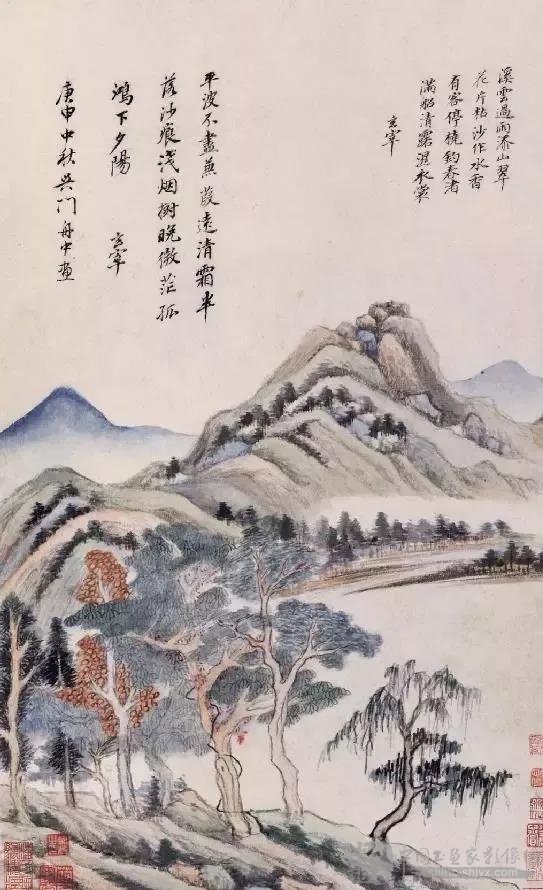 溪雲過雨添山翠
花片粘沙作水香
有客停橈釣春渚
滿船清露濕衣裳
玄宰
平波不盡蒹葭遠清霜半
落沙痕淺烟樹晚微茫孤
鴻下夕陽 玄宰
庚申中秋吳門舟中畫
中国书画家影像